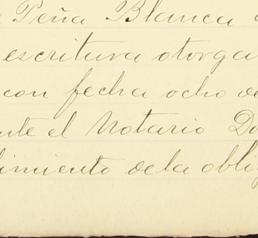 Peña Blanca
escritura otorga
con fecha ocho de
nte el Notario Do
limiento de la oblig